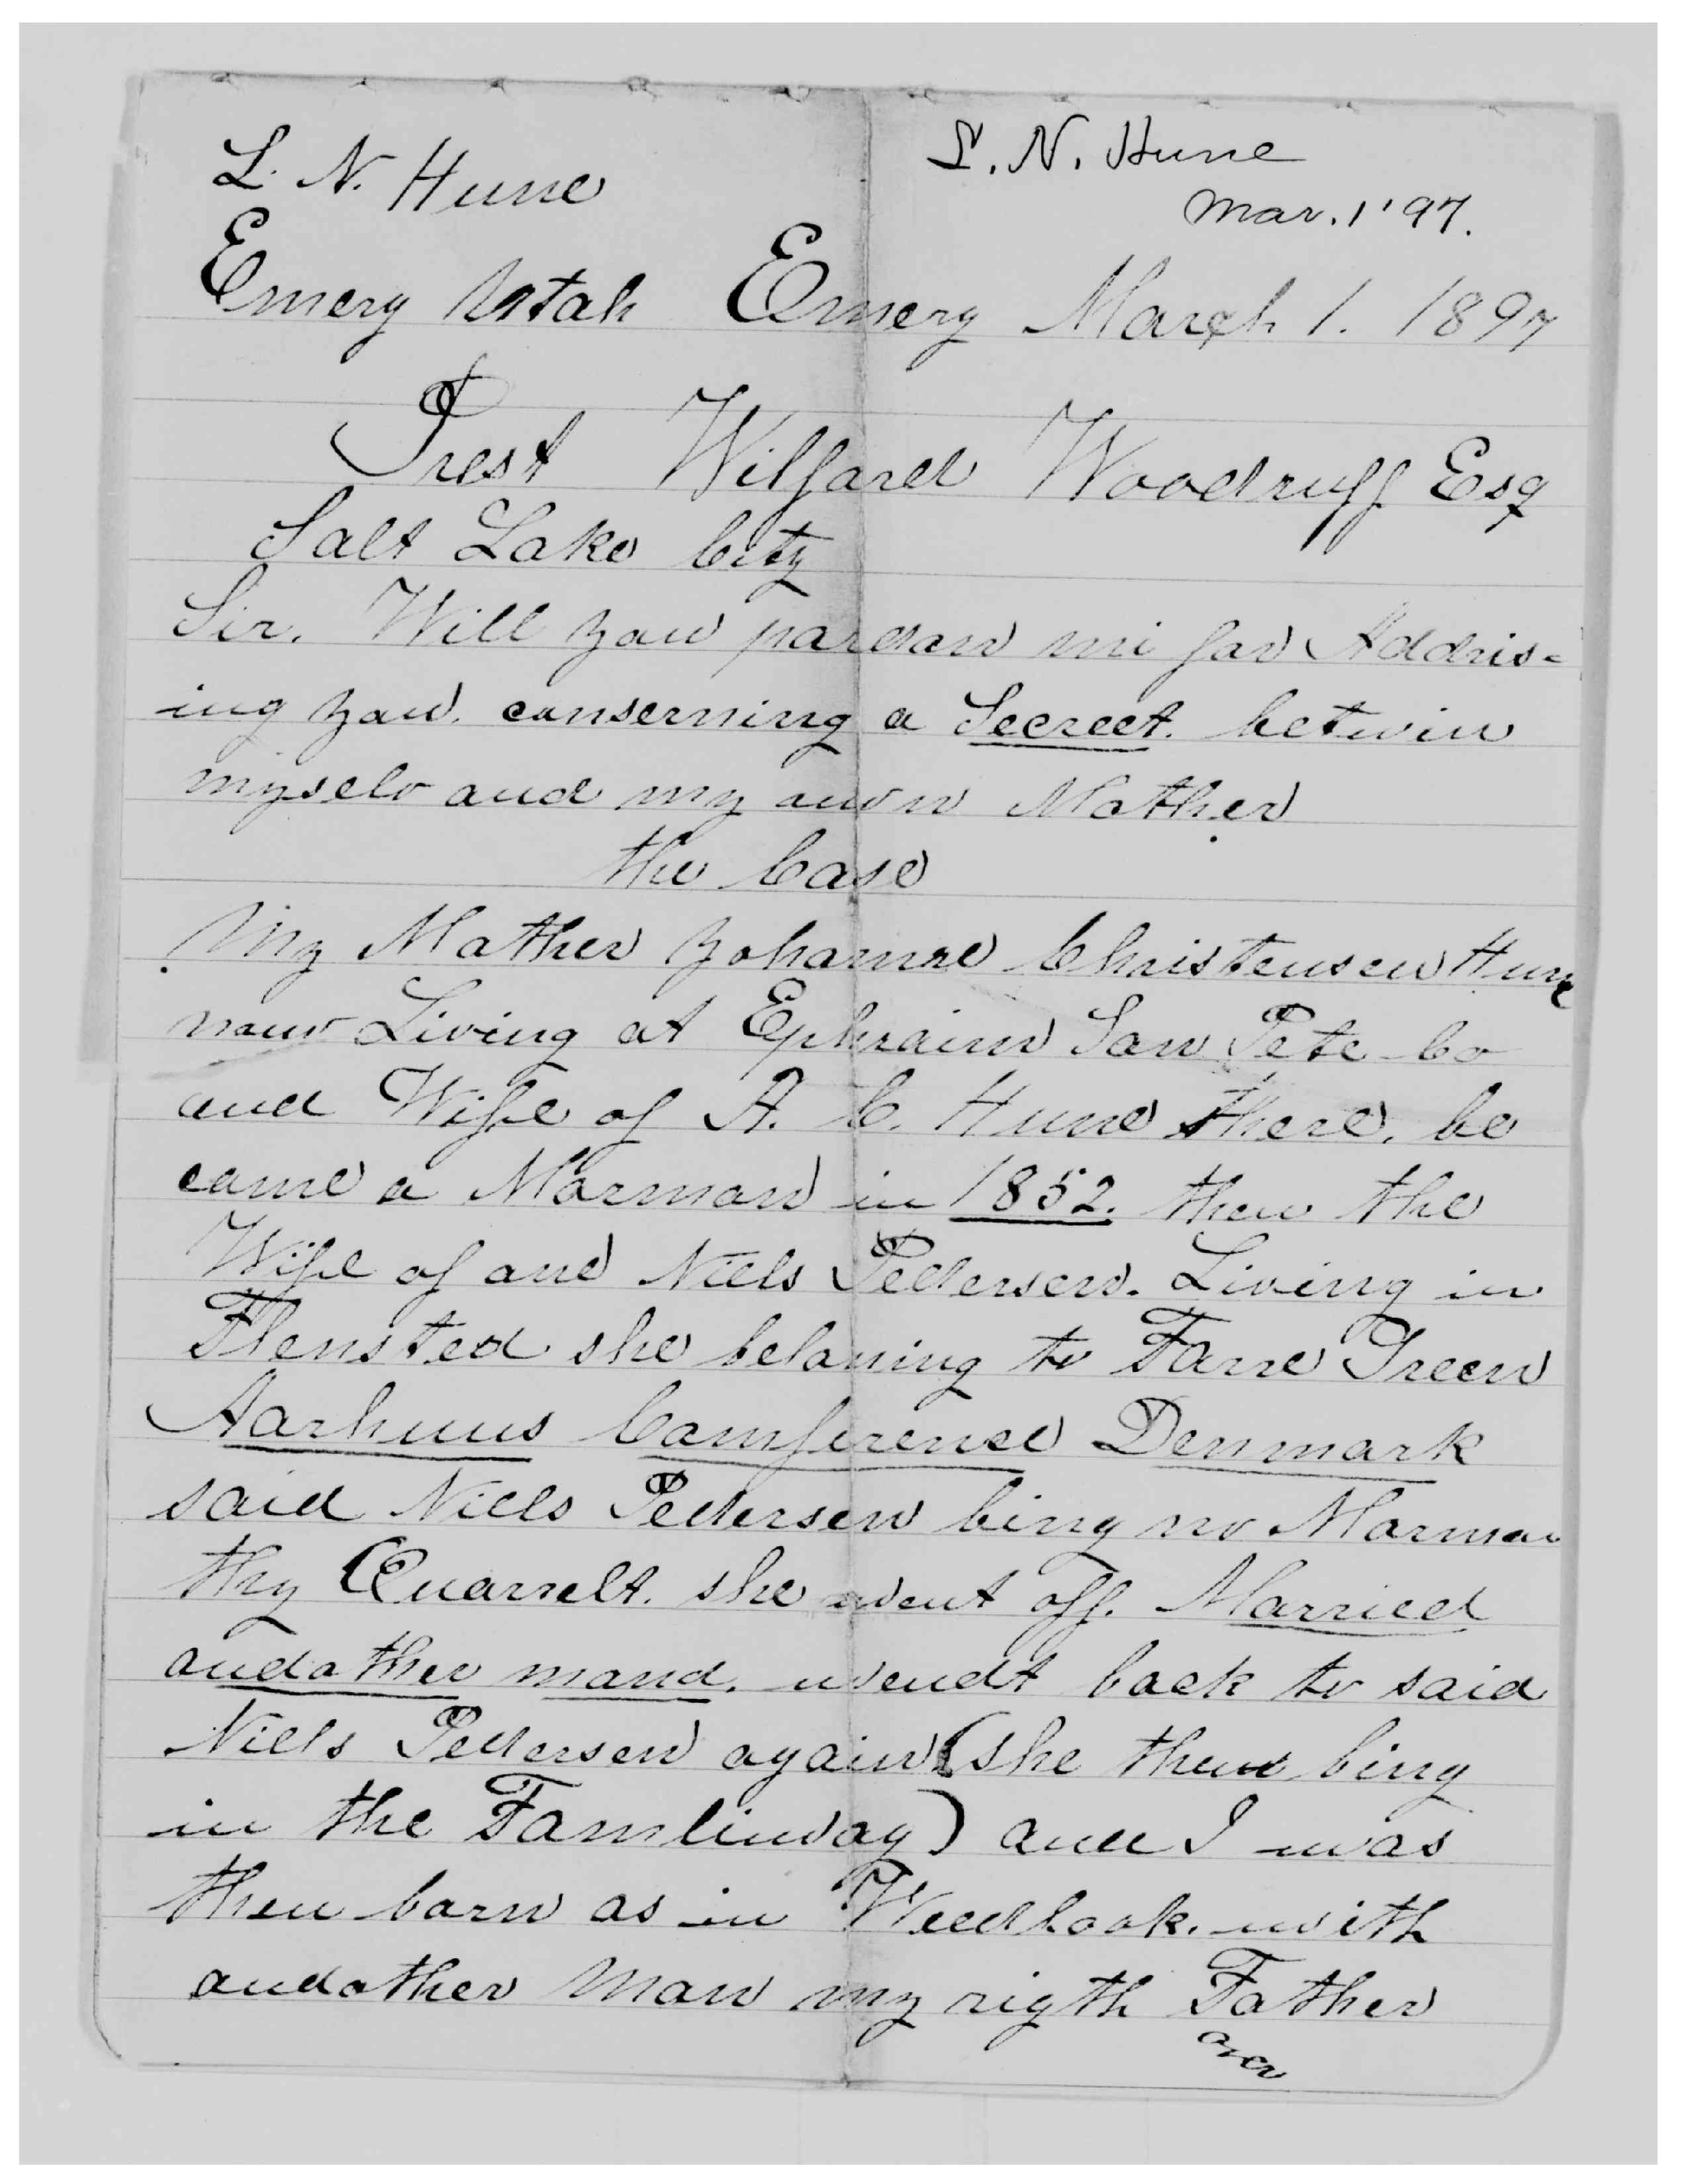 L. N. Hune
L. N. Hune
Mar. 1 '97.
Emery Utah Emery March 1. 1897
Prest Wilfard Woodruff Esq
Salt Lake City
Sir. Will you pardan mi for Addris=
ing you. conserning a Secreet. betwin
myselv and my awn Mother
the Case
My Mather Johanne Christensen Hune
now Living at Ephraim San Pete Co
and Wife of A. C. Hune there. be
came a Marmon in 1852. then the
Wife of ane Niels Pedersen. Living in
Flensted she belaning to Farre Green
Aarhuus Camference Denmark
said Niels Pedersen bing no Marmon
thy Quarrelt. she went off. Married
andather mand. wendt back to said
Niels Pedersen again (she then bing
in the Famlinway) and I was
then barn as in Weedlook. with
andather Man my rigth Father
over